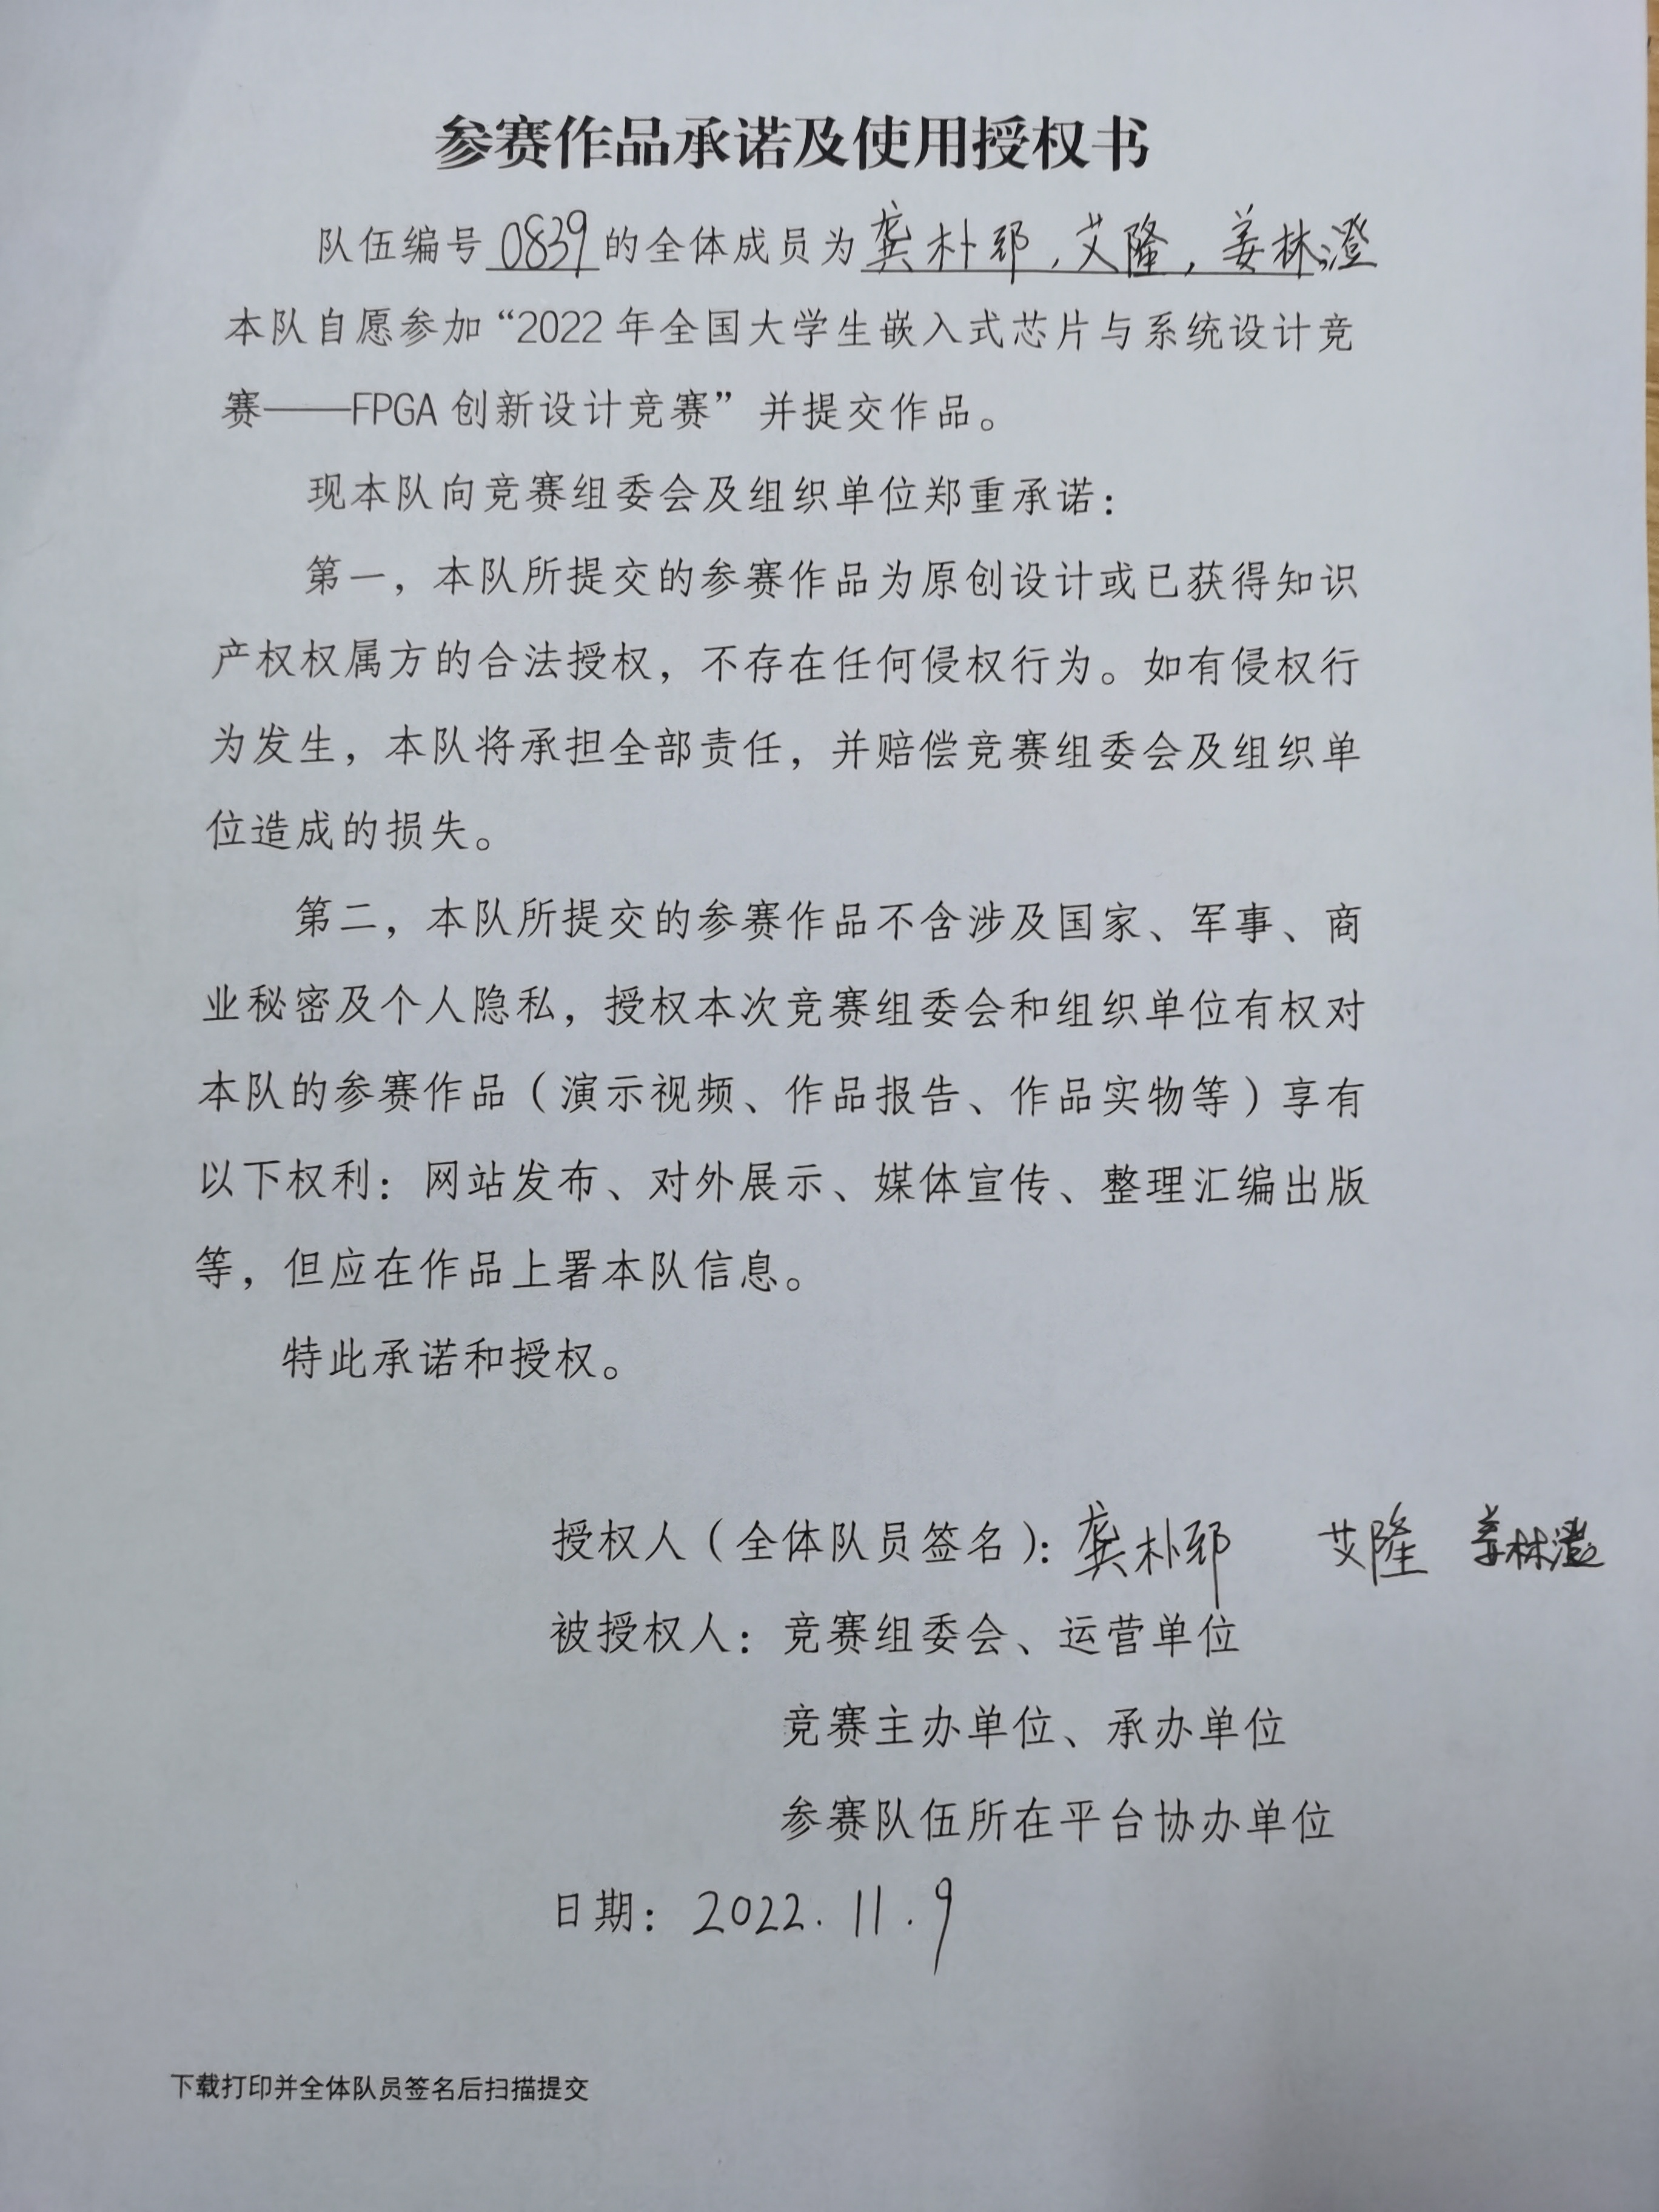 参赛作品承诺及使用授权书
队伍编号0839的全体成员为龚朴邳，艾隆，姜林澄
本队自愿参加“2022年全国大学生嵌入式芯片与系统设计竞
赛——FPGA创新设计竞赛”并提交作品。
现本队向竞赛组委会及组织单位郑重承诺：
第一，本队所提交的参赛作品为原创设计或已获得知识
产权权属方的合法授权，不存在任何侵权行为。如有侵权行
为发生，本队将承担全部责任，并赔偿竞赛组委会及组织单
位造成的损失。
第二，本队所提交的参赛作品不含涉及国家、军事、商
业秘密及个人隐私，授权本次竞赛组委会和组织单位有权对
本队的参赛作品（演示视频、作品报告、作品实物等）享有
以下权利：网站发布、对外展示、媒体宣传、整理汇编出版
等，但应在作品上署本队信息。
特此承诺和授权。
授权人（全体队员签名）：龚朴邳 艾隆 姜林澄
被授权人：竞赛组委会、运营单位
竞赛主办单位、承办单位
参赛队伍所在平台协办单位
日期：2022.11.9
下载打印并全体队员签名后扫描提交